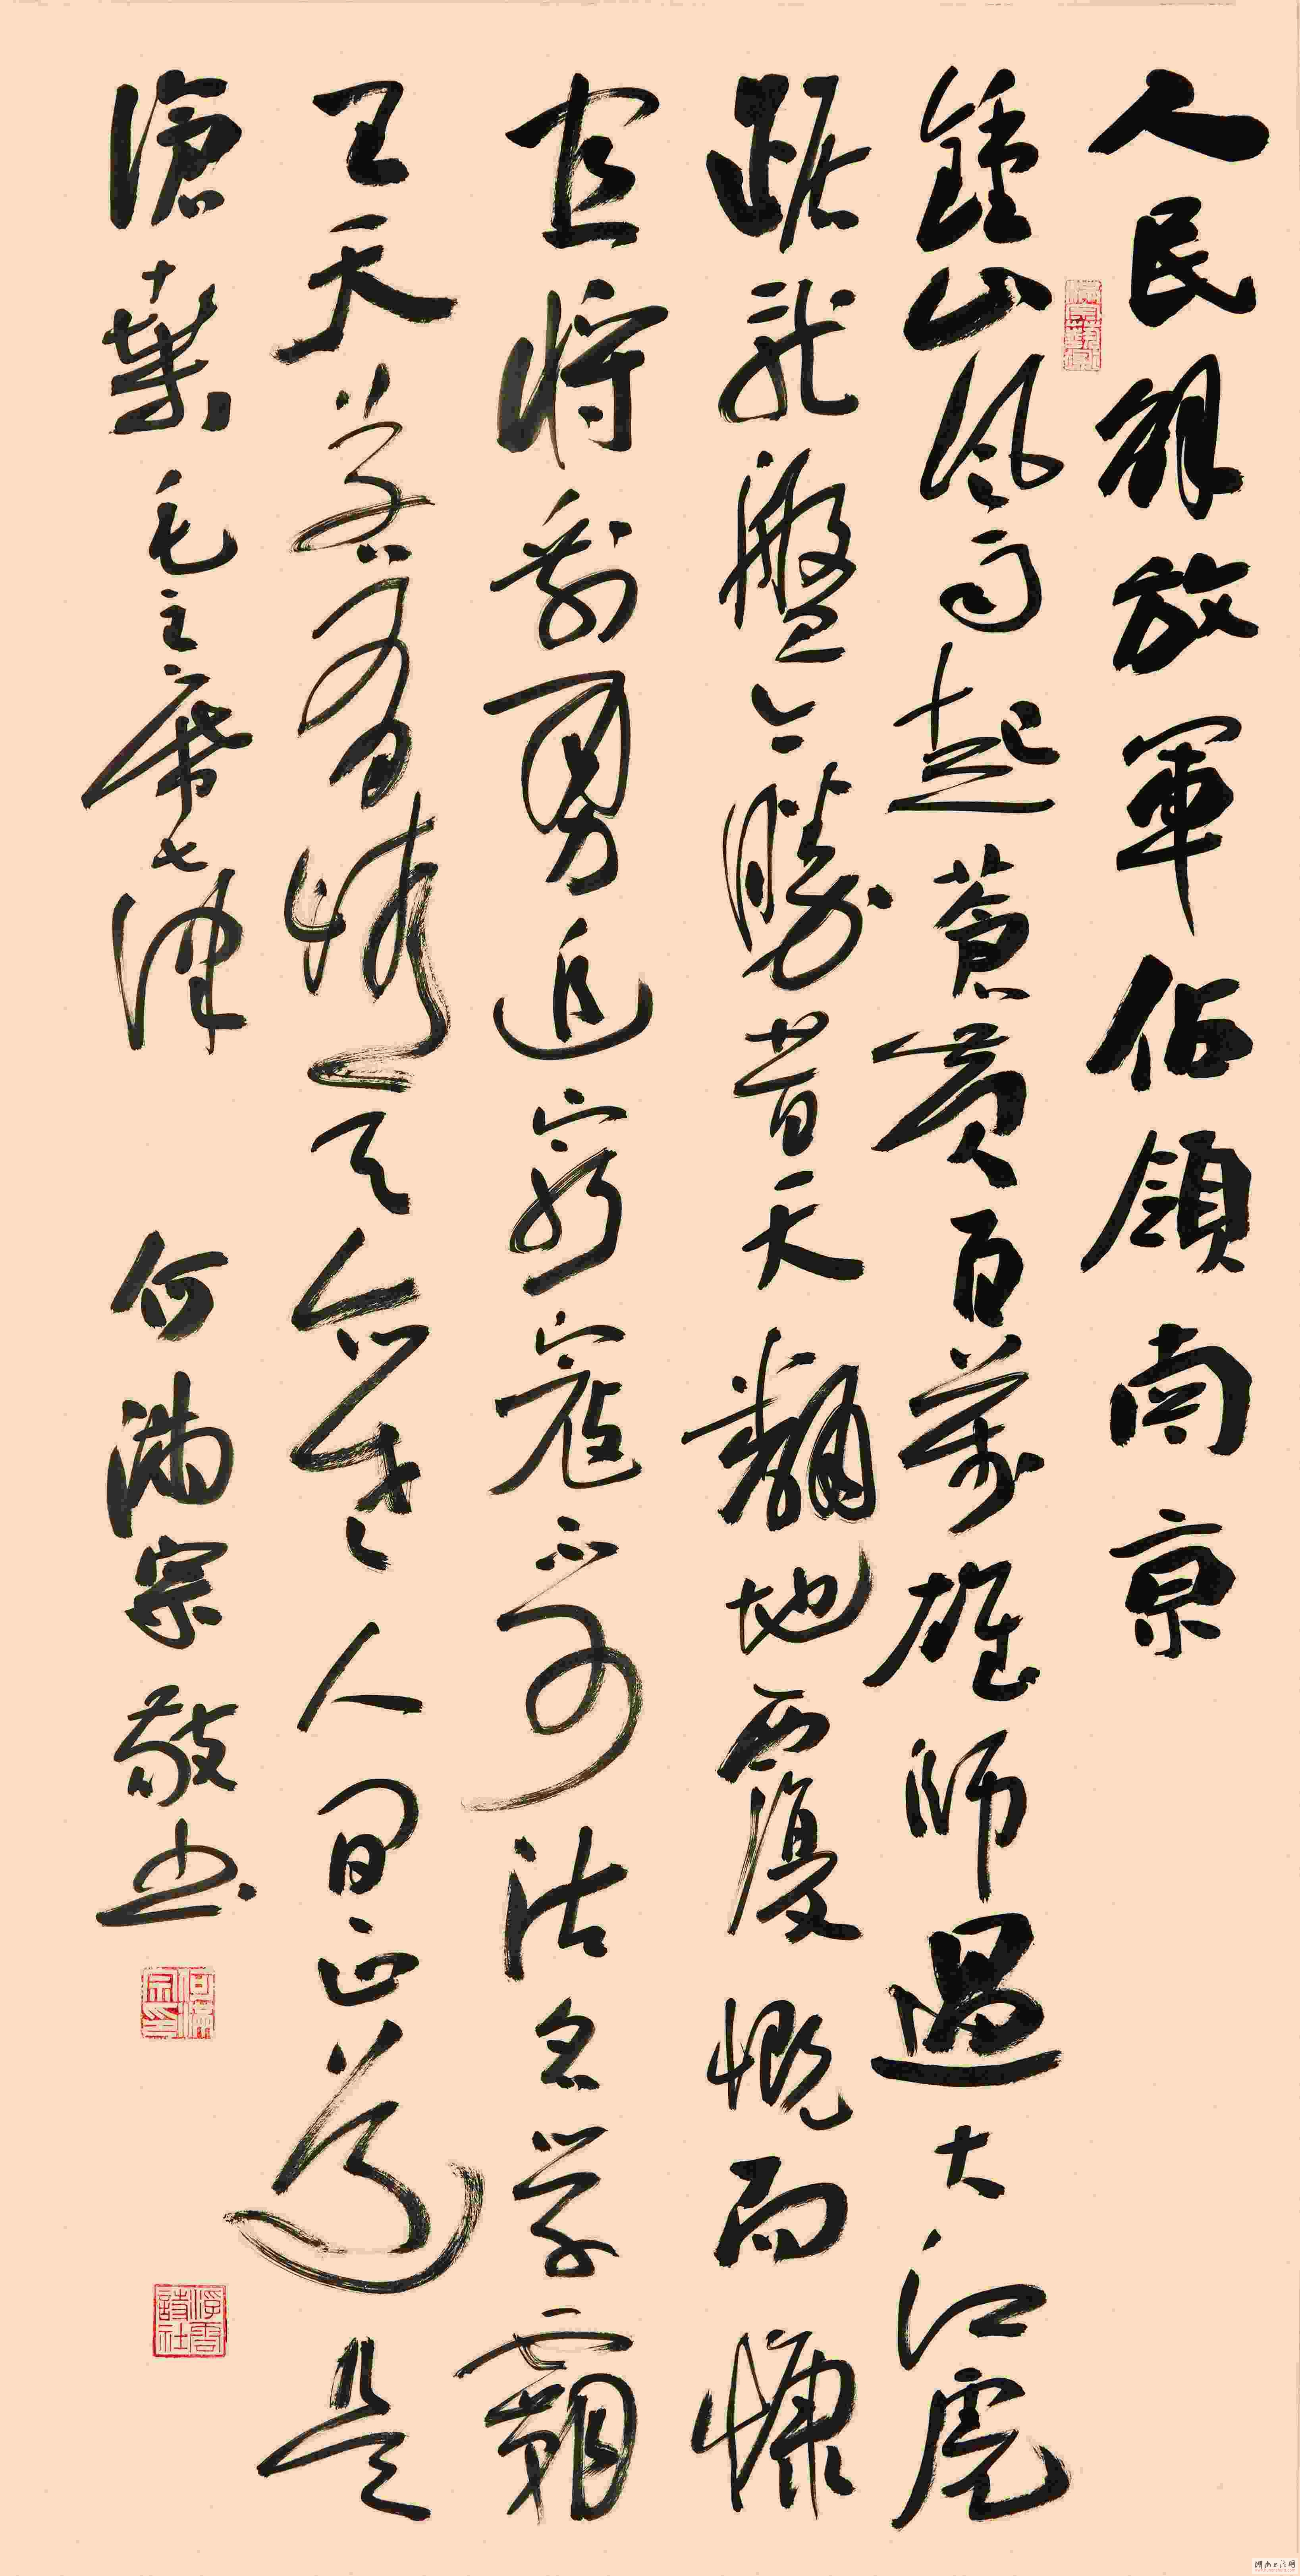 人民解放軍佔領南京
鍾山風雨起蒼黃百萬雄師過大江虎
踞龍盤今勝昔天翻地覆慨而慷
宜將剩勇追窮寇不可沽名學霸
王天若有情天亦老人間正道是
滄桑 毛主席七律 何滿宗敬書
何滿宗印
浮雲詩社